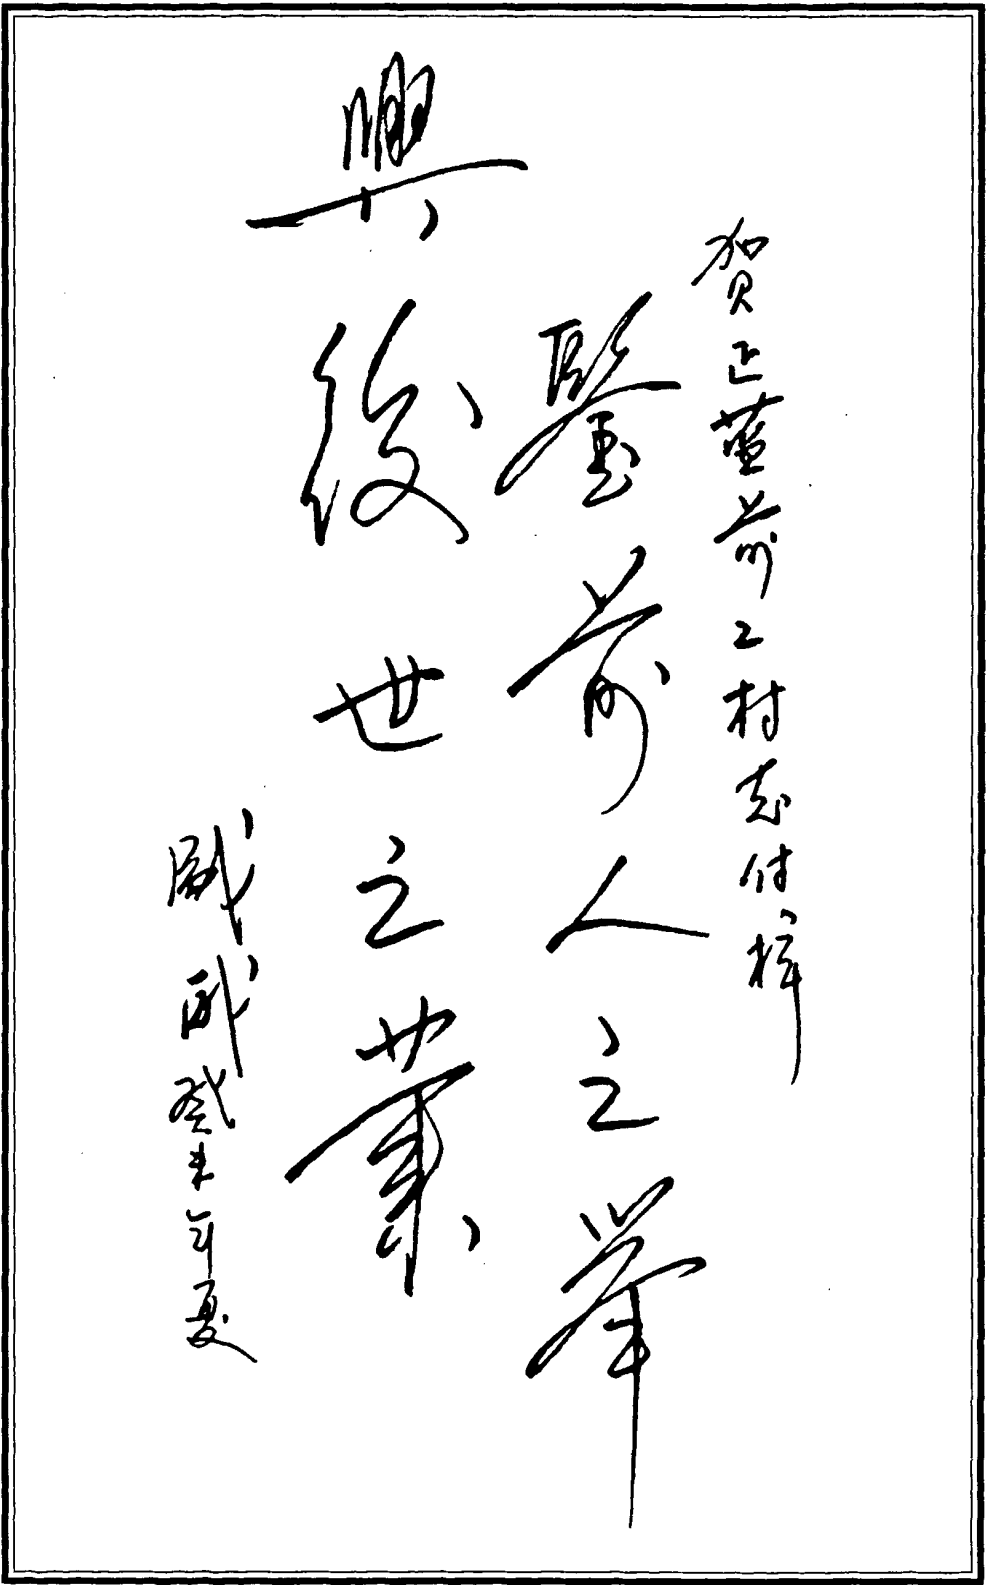 贺正董前工村志付梓
鑒前人之举
興後世之業
癸未年夏